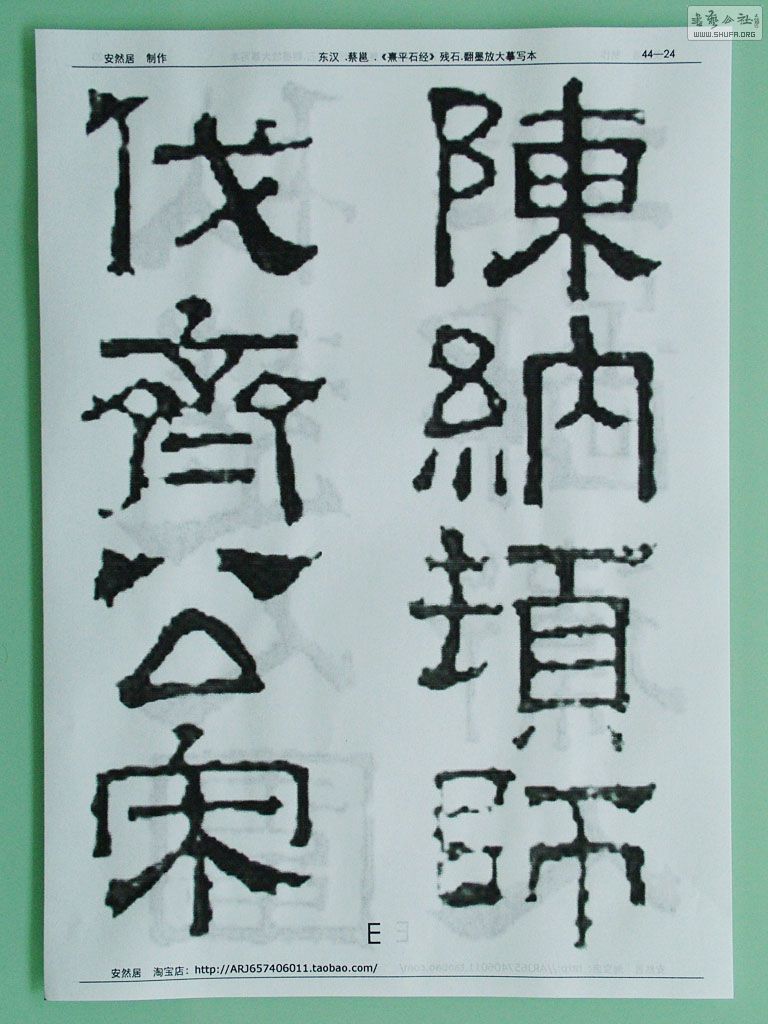 書藝公社
WWW.SHUFA.ORG
安然居 制作 东汉 .蔡邕 .《熹平石经》残石.翻墨放大摹写本 44—24
陳納頓師
伐齊公宋
E
安然居 淘宝店：http://ARJ657406011.taobao.com/